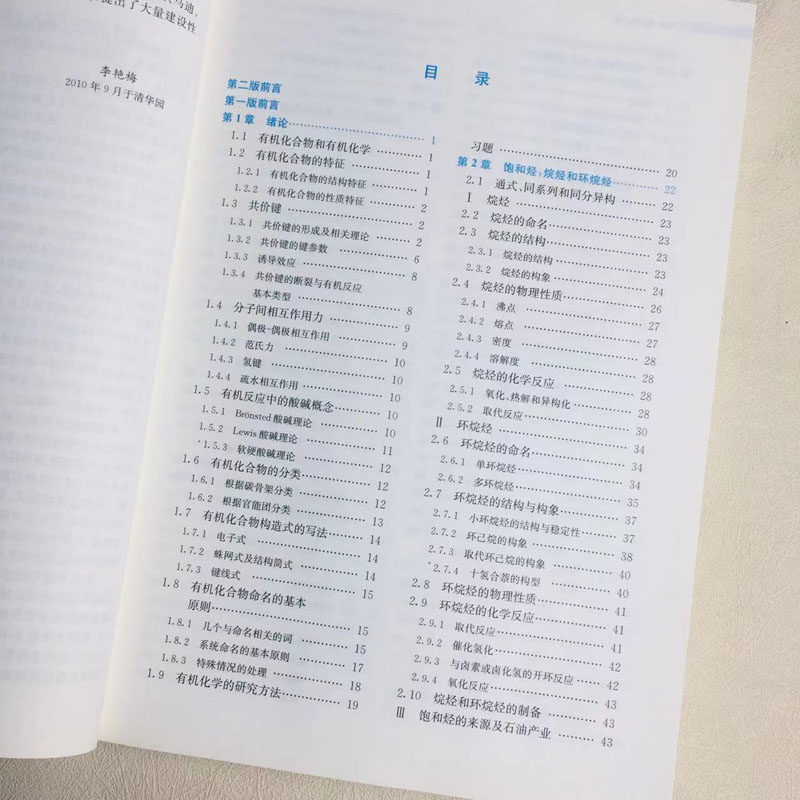 马迪、
提出了大量建设性
李艳梅
2010年9月于清华园
目 录
第二版前言
第一版前言
第1章 绪论 1
1.1 有机化合物和有机化学 1
1.2 有机化合物的特征 1
1.2.1 有机化合物的结构特征 1
1.2.2 有机化合物的性质特征 2
1.3 共价键 2
1.3.1 共价键的形成及相关理论 2
1.3.2 共价键的键参数 6
1.3.3 诱导效应 8
1.3.4 共价键的断裂与有机反应
基本类型 8
1.4 分子间相互作用力 9
1.4.1 偶极-偶极相互作用 9
1.4.2 范氏力 10
1.4.3 氢键 10
1.4.4 疏水相互作用 10
1.5 有机反应中的酸碱概念 10
1.5.1 Brönsted酸碱理论 10
1.5.2 Lewis酸碱理论 11
*1.5.3 软硬酸碱理论 12
1.6 有机化合物的分类 12
1.6.1 根据碳骨架分类 12
1.6.2 根据官能团分类 13
1.7 有机化合物构造式的写法 14
1.7.1 电子式 14
1.7.2 蛛网式及结构简式 14
1.7.3 键线式 15
1.8 有机化合物命名的基本
原则 15
1.8.1 几个与命名相关的词 15
1.8.2 系统命名的基本原则 17
1.8.3 特殊情况的处理 18
1.9 有机化学的研究方法 19
习题 20
第2章 饱和烃:烷烃和环烷烃 22
2.1 通式、同系列和同分异构 22
Ⅰ 烷烃 23
2.2 烷烃的命名 23
2.3 烷烃的结构 23
2.3.1 烷烃的结构 23
2.3.2 烷烃的构象 24
2.4 烷烃的物理性质 26
2.4.1 沸点 27
2.4.2 熔点 27
2.4.3 密度 28
2.4.4 溶解度 28
2.5 烷烃的化学反应 28
2.5.1 氧化、热解和异构化 28
2.5.2 取代反应 30
Ⅱ 环烷烃 34
2.6 环烷烃的命名 34
2.6.1 单环烷烃 34
2.6.2 多环烷烃 35
2.7 环烷烃的结构与构象 37
2.7.1 小环烷烃的结构与稳定性 37
2.7.2 环己烷的构象 38
2.7.3 取代环己烷的构象 40
*2.7.4 十氢合萘的构型 40
2.8 环烷烃的物理性质 41
2.9 环烷烃的化学反应 41
2.9.1 取代反应 41
2.9.2 催化氢化 42
2.9.3 与卤素或卤化氢的开环反应 42
2.9.4 氧化反应 43
2.10 烷烃和环烷烃的制备 43
Ⅲ 饱和烃的来源及石油产业 43